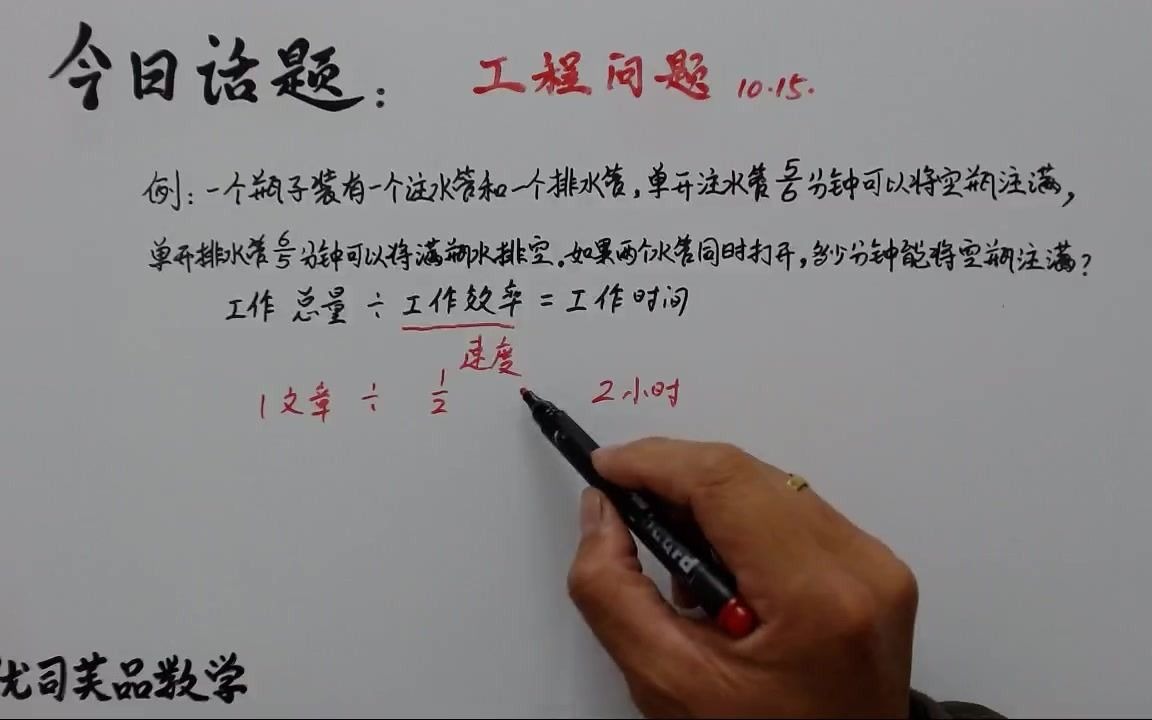 今日话题： 工程问题 10.15.
例：一个瓶子装有一个注水管和一个排水管，单开注水管5/6分钟可以将空瓶注满，
单开排水管6/5分钟可以将满瓶水排空。如果两个水管同时打开，多少分钟能将空瓶注满？
工作总量÷工作效率=工作时间
速度
1文章 ÷ 1/2 2小时
优司芙品数学